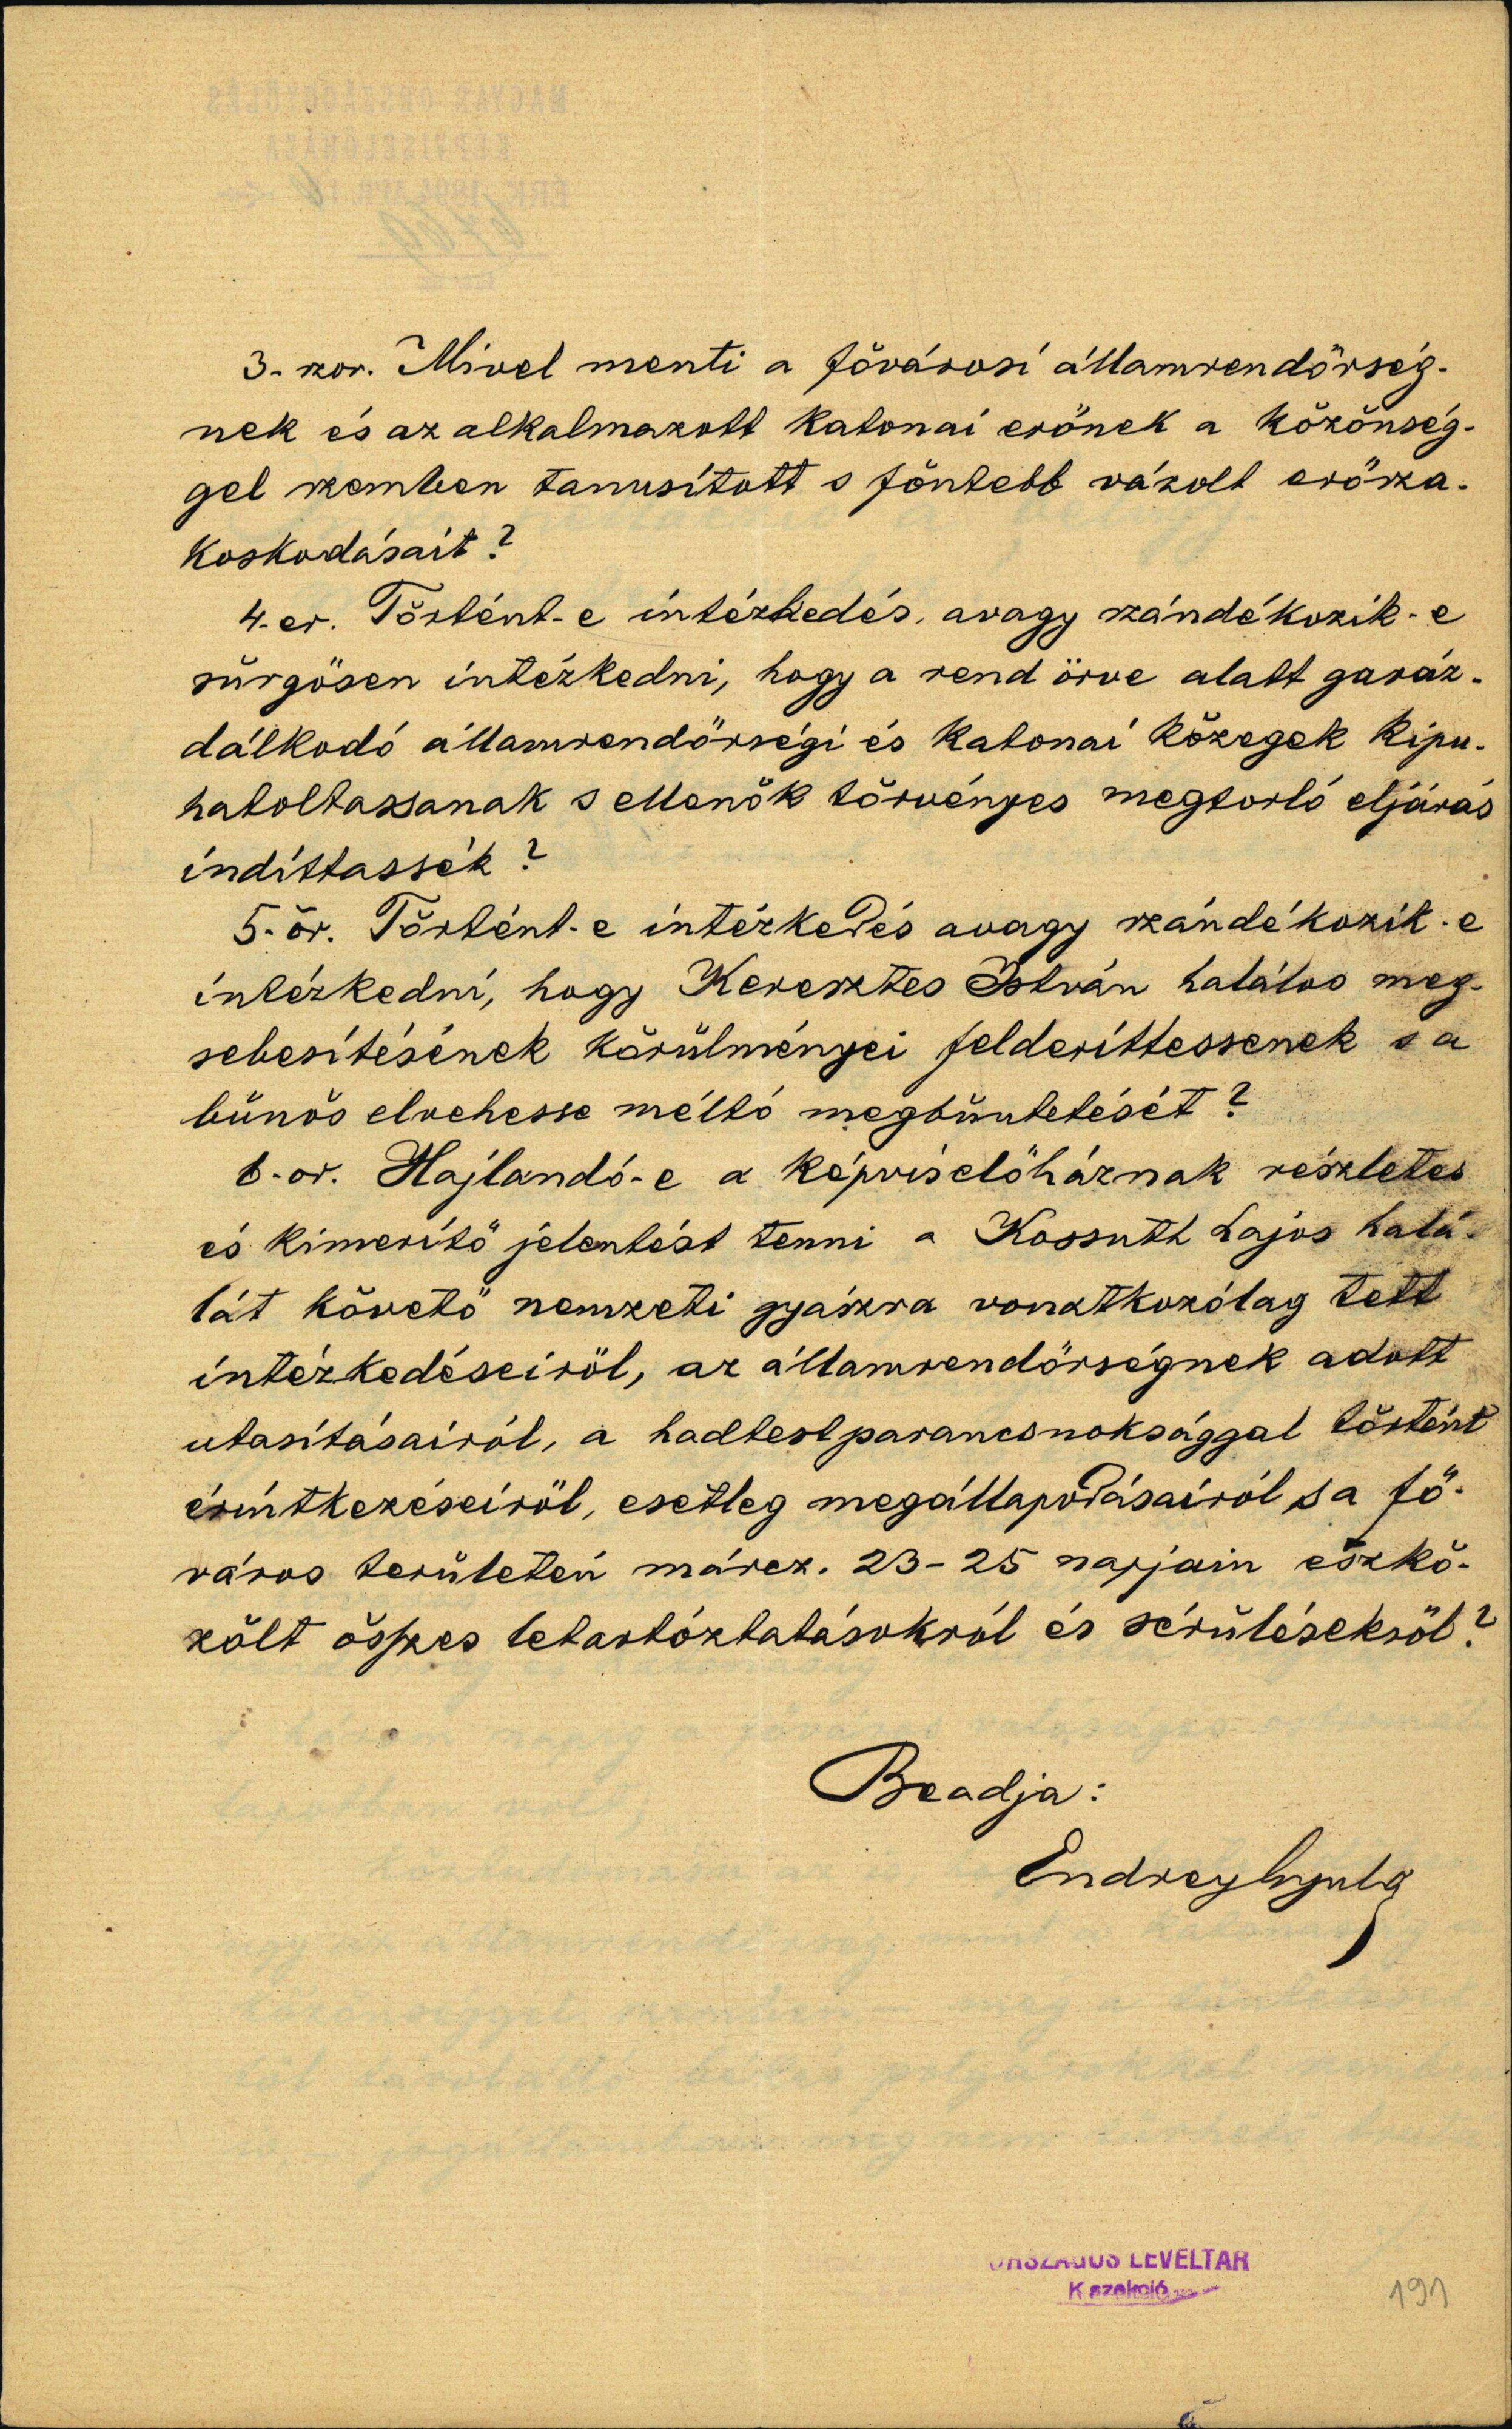 3-szor. Mivel menti a fővárosi államrendőrség-
nek és az alkalmazott katonai erőnek a közönség-
gel szemben tanusított s föntebb vázolt erősza-
koskodásait?
4-er. Történt-e intézkedés, avagy szándékozik-e
sürgősen intézkedni, hogy a rend örve alatt garáz-
dálkodó államrendőrségi és katonai közegek kipu-
hatoltassanak s ellenök törvényes megtorló eljárás
indíttassék?
5-ör. Történt-e intézkedés avagy szándékozik-e
intézkedni, hogy Keresztes István halálos meg-
sebesítésének körülményei felderíttessenek s a
bűnös elvehesse méltó megbüntetését?
6-or. Hajlandó-e a képviselőháznak részletes
és kimerítő jelentést tenni a Kossuth Lajos halá-
lát követő nemzeti gyászra vonatkozólag tett
intézkedéseiről, az államrendőrségnek adott
utasításairól, a hadtestparancsnoksággal történt
érintkezéseiről, esetleg megállapodásairól s a fő-
város területén márcz. 23-25 napjain eszkö-
zölt összes letartóztatásokról és sérülésekről?
Beadja:
Endrey Gyula
ORSZÁGOS LEVÉLTÁR
K szekció
191